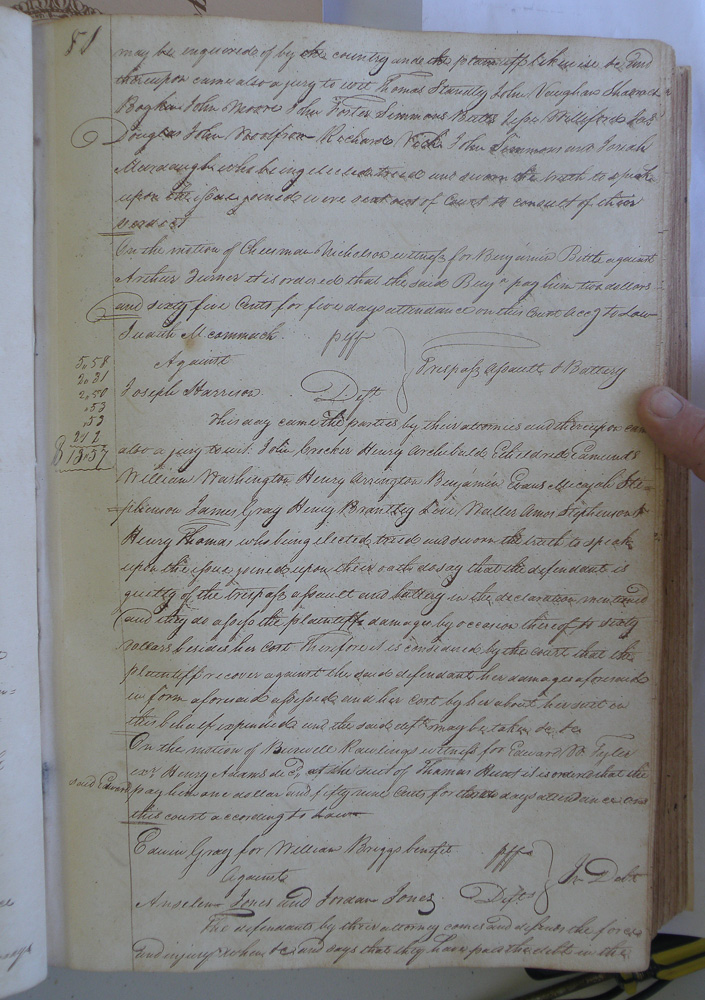 51
may be inquired of by the country and the plaintiff likewise and
thereupon came also a jury to wit Thomas Standly John Vaughan
Boykin John Moore John Foster Simmons Butts Willyford
Douglas John Woolfrow Richard Vick John Simmons and Josiah
Murdaugh who being elected tried and sworn the truth to speak
upon the issue joined were sent out of Court to consult of their
verdict
On the motion of Cheesman Nicholson witness for Benjamin Bittle against
Arthur Turner it is ordered that the said Benja pay him two dollars
and sixty five Cents for five days attendance on this Court accg to Law
Judith McCormack plff
Against
Trespass Assault & Battery
Joseph Harrison Deft
5.58
2.31
2.50
.53
.53
2 1 2
8 13.57
This day came the parties by their attornies and thereupon came
also a jury to wit John Crocker Henry Archibald Etheldred Edmunds
William Washington Henry Arrington Benjamin Evans Micajah Ste-
phenson James Gray Henry Brantley Levi Waller Amos Stephenson &
Henry Thomas who being elected tried and sworn the truth to speak
upon the issue joined upon their oath do say that the defendant is
guilty of the trespass assault and battery in the declaration mentioned
and they do assess the plaintiffs damages by occasion thereof to sixty
dollars besides her cost Therefore it is considered by the court that the
plaintiff recover against the said defendant her damages aforesaid
in form aforesaid assessed and her cost by her about her suit in
this behalf expended and the said deft may be taken &c &c
On the motion of Burwell Rawlings witness for Edward W Tyler
exr Henry Adams decd at the suit of Thomas Hurst it is ordered that the
said Edward pay him one dollar and fifty nine Cents for three days attendance on
this court according to Law
Edwin Gray for William Briggs benefit plff
Against
In Debt
Anselm Jones and Jordan Jones Defts
The defendants by their attorney comes and defends the force
and injury when &c and says that they have paid the debt in the